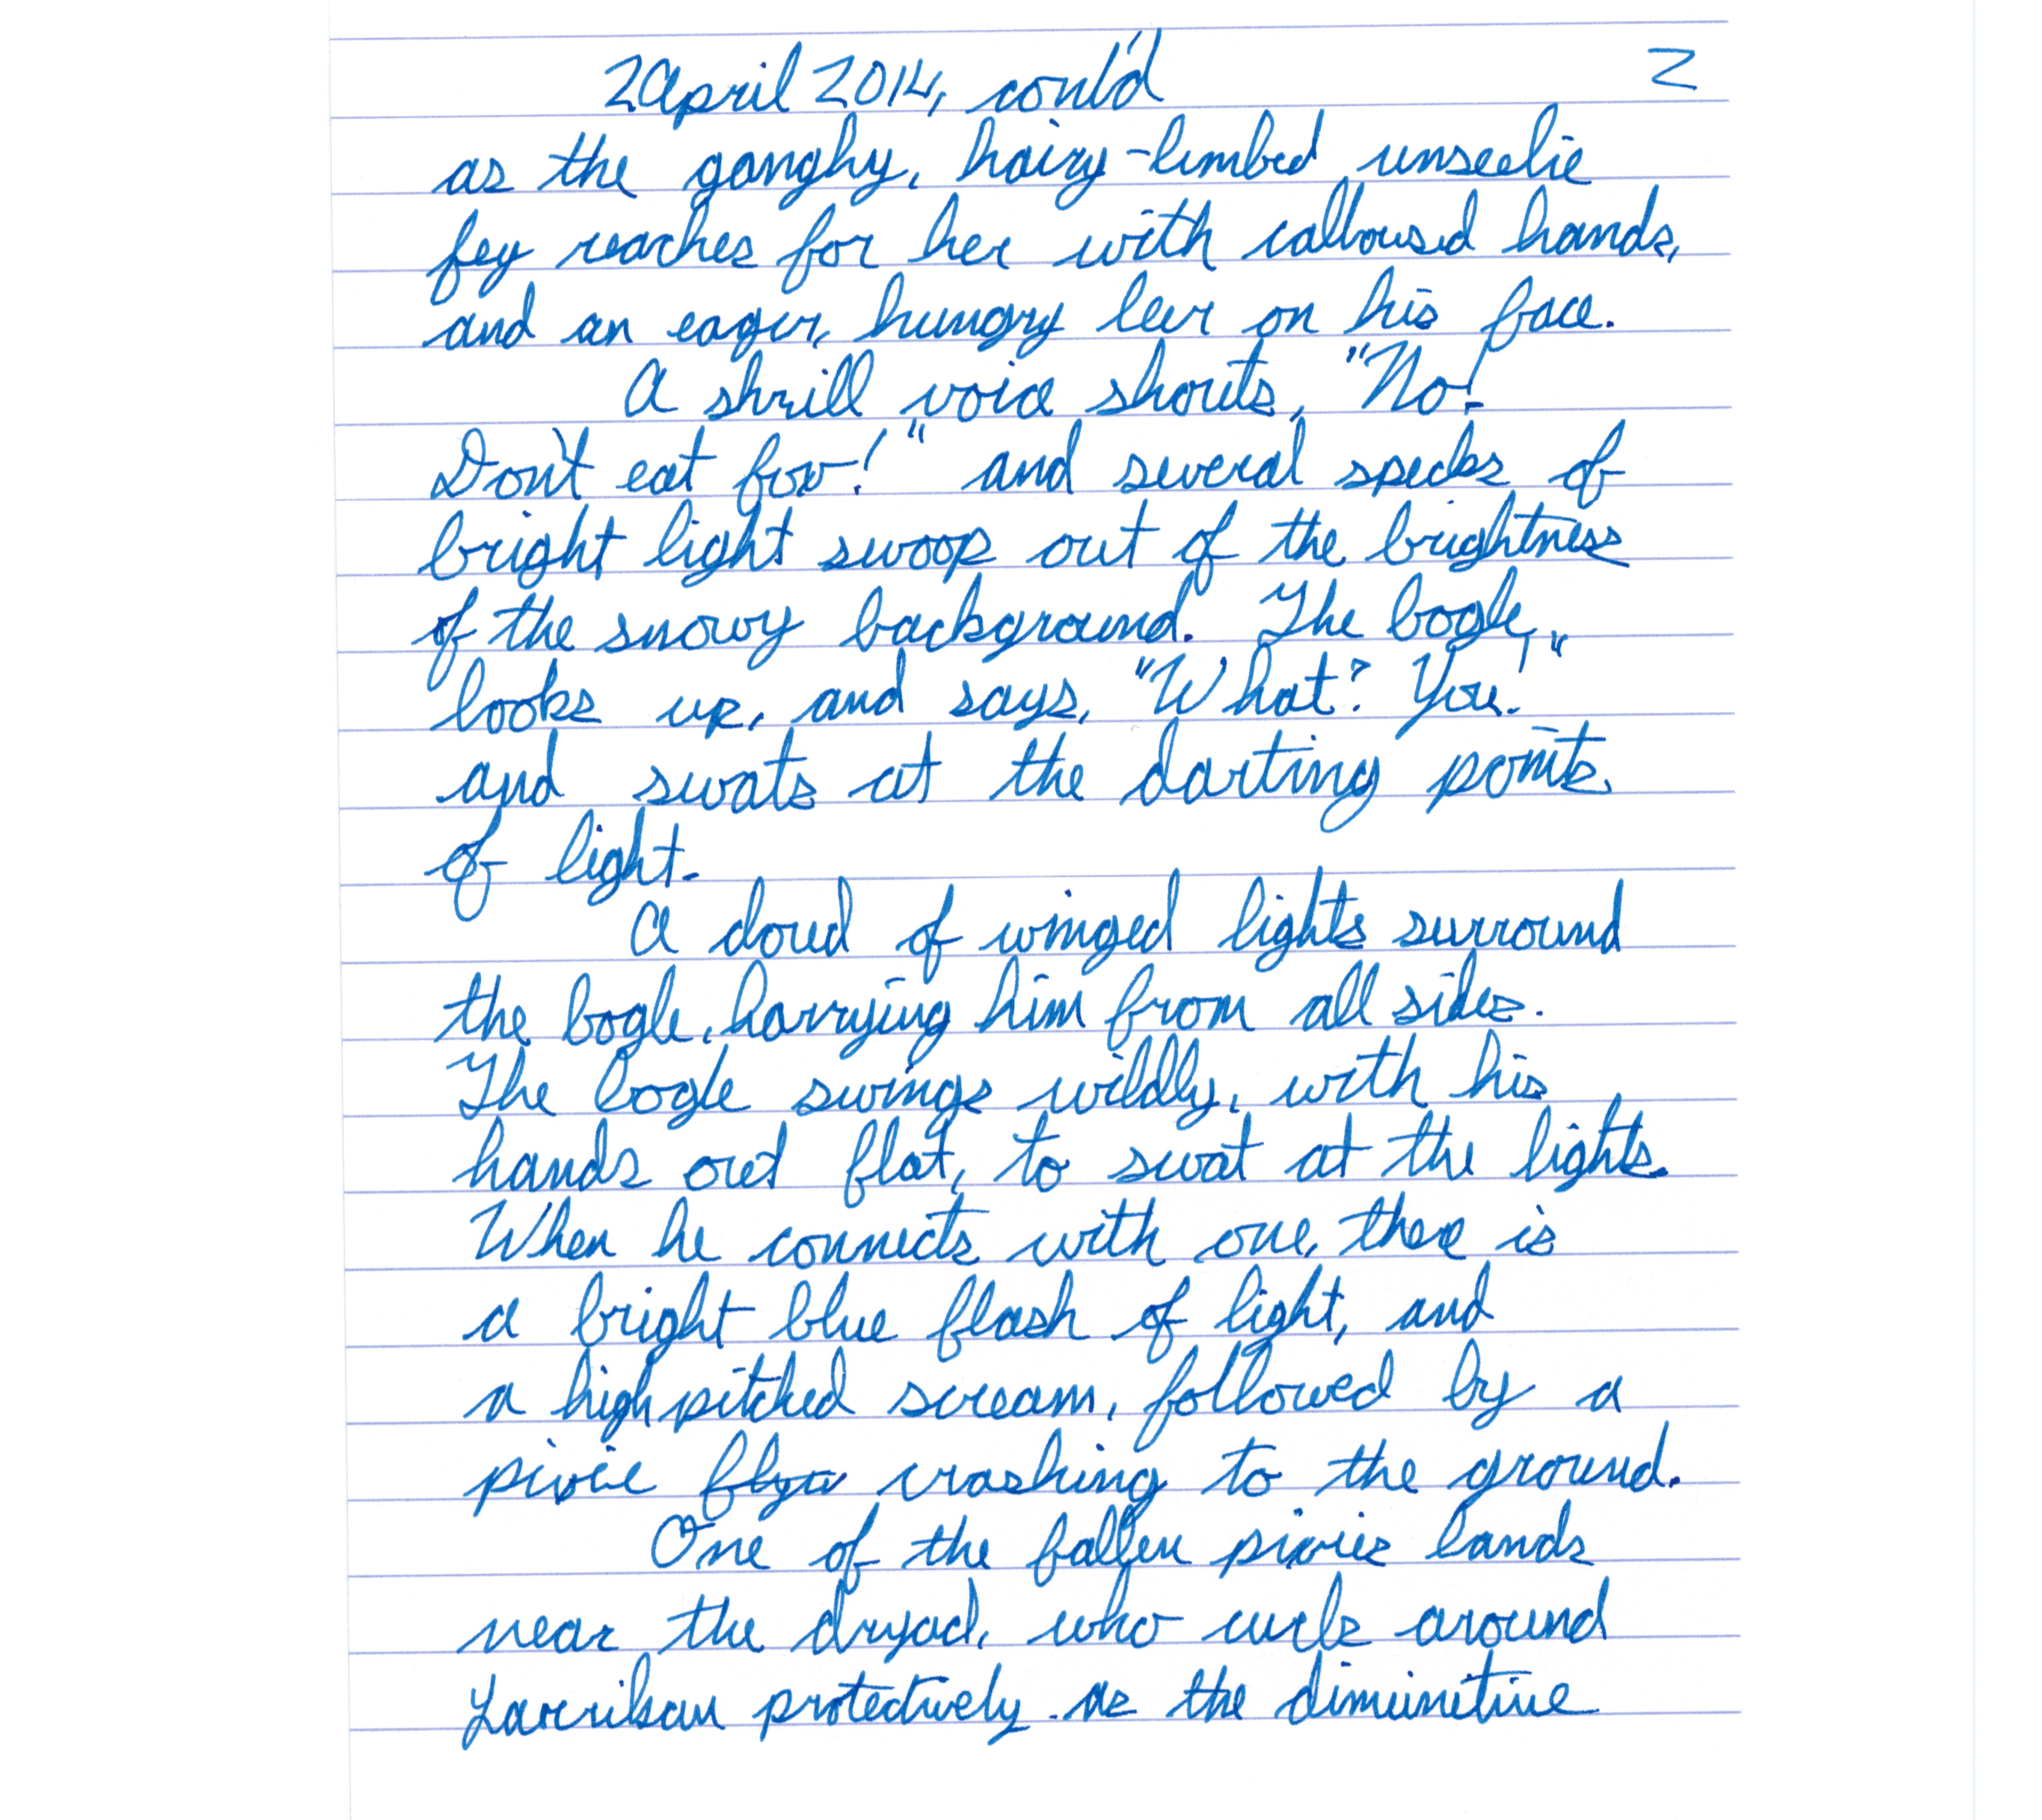 2 April 2014, cont'd 2
as the ganghy, hairy-limbed unseelie
fey reaches for her with calloused hands,
and an eager, hungry leer on his face.
A shrill voice shouts, "No!
Don't eat fox!" and several specks of
bright light swoop out of the brightness
of the snowy background. The bogle,
looks up, and says, "What? You!"
and swats at the darting points
of light.
A cloud of winged lights surround
the bogle, harrying him from all sides.
The bogle swings wildly, with his
hands out flat, to swat at the lights.
When he connects with one, there is
a bright blue flash of light, and
a high pitched scream, followed by a
pixie crashing to the ground.
One of the fallen pixies lands
near the dryad, who curls around
protectively as the dimunitive